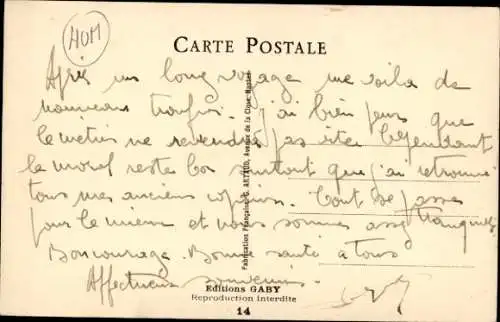 HOM
CARTE POSTALE
Après un long voyage me voila de
nouveau troufion. j'ai bien peur que
le métier ne pas vite Cependant
le moral reste bon surtout que j'ai retrouvé
tous mes anciens copains. Tout se passe
pour le mieux et nous sommes assez tranquilles
Bon courage. Bonne santé à tous
Affectueux souvenirs.
Fabrication Française, G. ARTAUD, Avenue de la Close, Nantes
Editions GABY
Reproduction Interdite
14